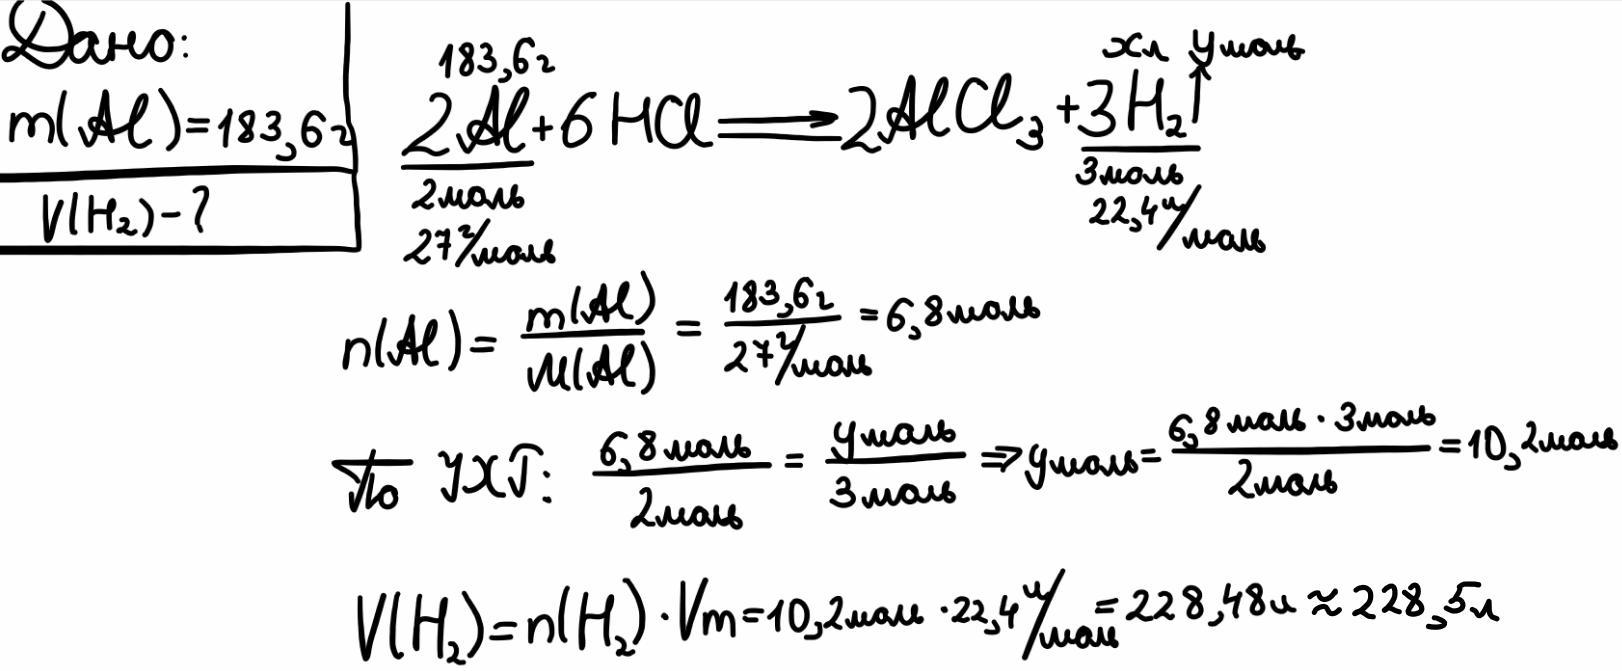 Дано:
m(Al)=183,6г
V(H₂)-?
183,6г xл yмоль
2Al+6HCl⟹2AlCl₃+3H₂↑
2моль 3моль
27г/моль 22,4л/моль
n(Al)=m(Al)/M(Al)=183,6г/27г/моль=6,8моль
По УХР: 6,8моль/2моль=yмоль/3моль⇒yмоль=6,8моль·3моль/2моль=10,2моль
V(H₂)=n(H₂)·Vm=10,2моль·22,4л/моль=228,48л≈228,5л